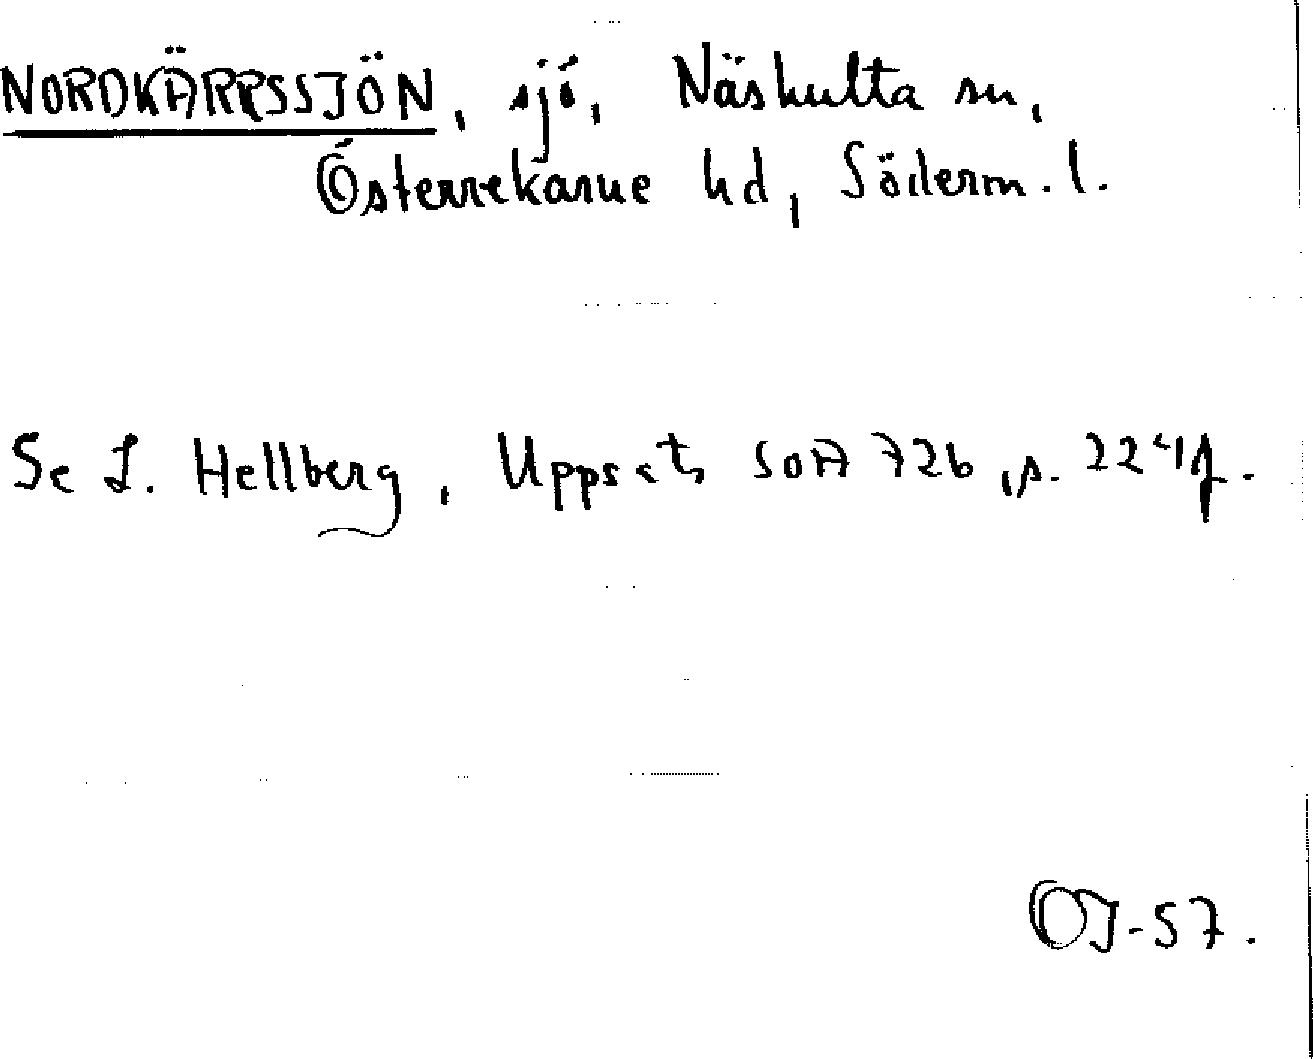 NORDKÄRRSSJÖN, sjö, Näshulta sn,
Österrekarne hd, Söderm. l.
Se L. Hellberg, Uppsats SOA 726, s. 224f.
OJ-57.